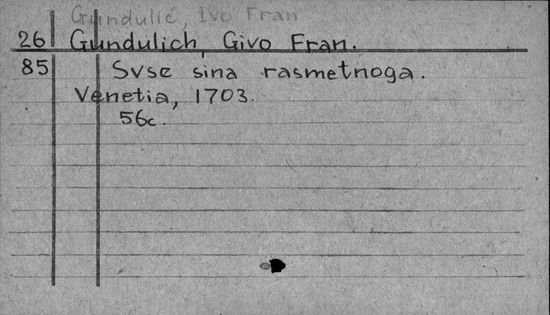 Gundulić, Ivo Fran
26 Gundulich, Givo Fran.
85 Svse sina rasmetnoga.
Venetia, 1703.
56c.